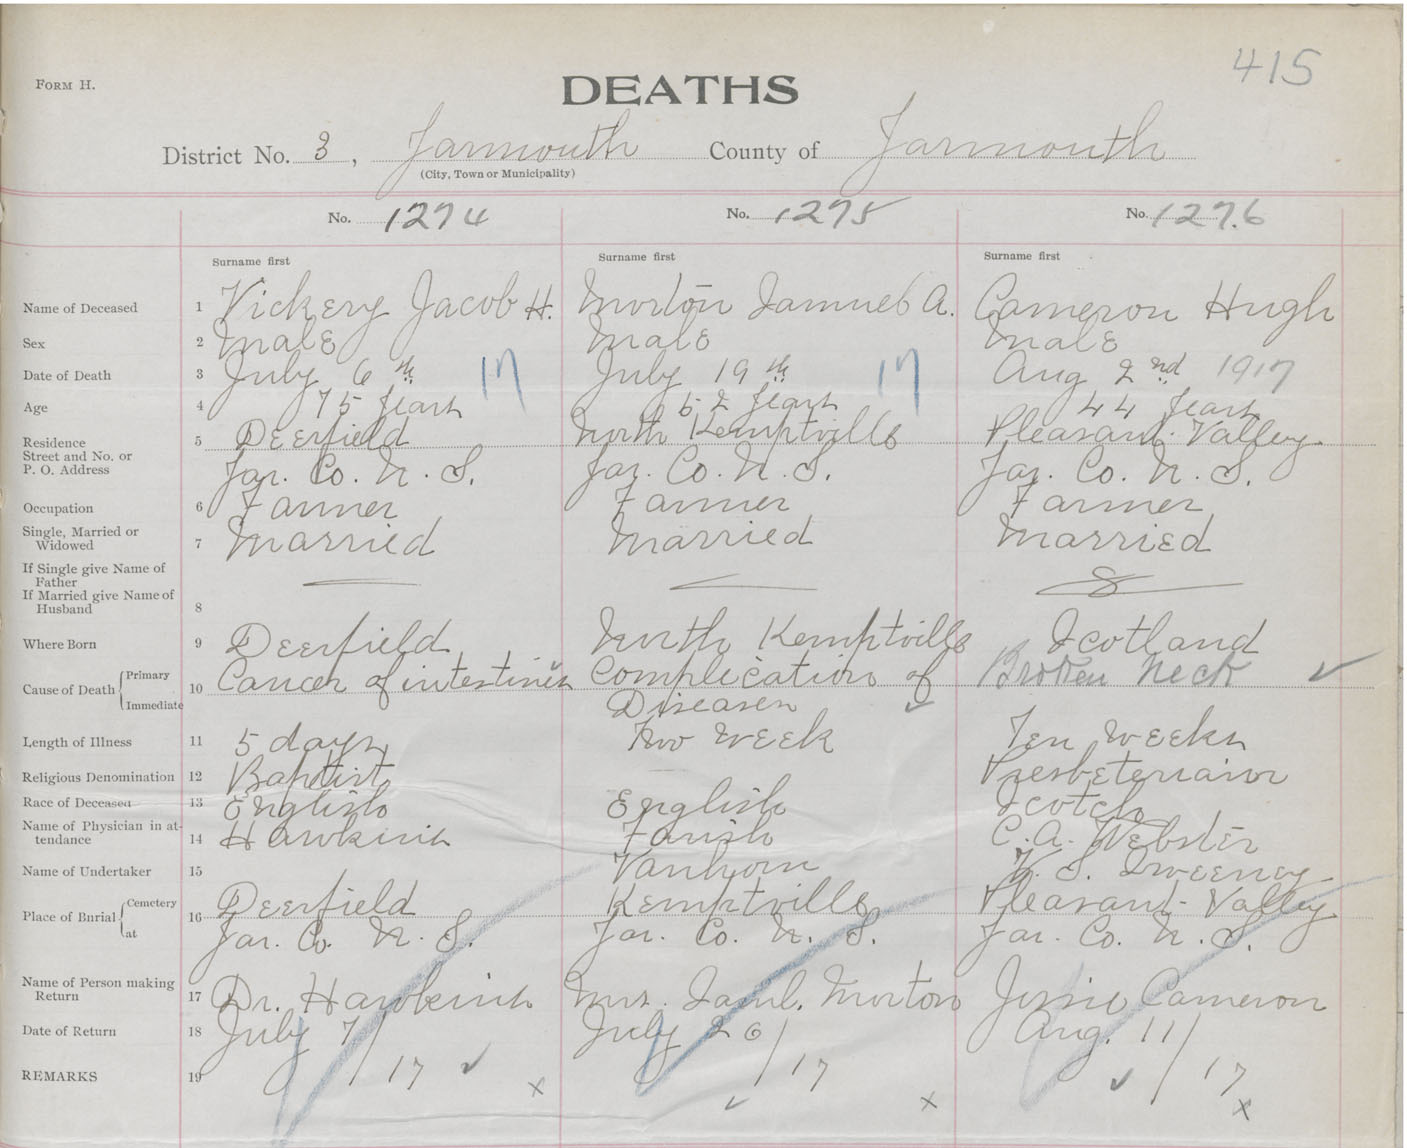 415
FORM H.
DEATHS
District No. 3, Yarmouth County of Yarmouth
(City, Town or Municipality)
No. 1274 No. 1275 No. 1276
Surname first Surname first Surname first
Name of Deceased 1 Vickery Jacob H. Morton Samuel A. Cameron Hugh
Sex 2 Male Male Male
Date of Death 3 July 6th 17 July 19th 17 Aug 2nd 1917
Age 4 75 years 62 years 44 years
Residence 5 Deerfield North Kemptville Pleasant Valley
Street and No. or
P. O. Address Yar. Co. N. S. Yar. Co. N. S. Yar. Co. N. S.
Occupation 6 Farmer Farmer Farmer
Single, Married or
Widowed 7 Married Married Married
If Single give Name of
Father
If Married give Name of
Husband 8
Where Born 9 Deerfield North Kemptville Scotland
Cause of Death Primary 10 Cancer of intestines Complication of Broken Neck
Immediate Diseases
Length of Illness 11 5 days Two week Ten weeks
Religious Denomination 12 Baptist Presbeterian
Race of Deceased 13 English English Scotch
Name of Physician in at-
tendance 14 Hawkins Farish C. A. Webster
Name of Undertaker 15 Vanhorn V. S. Sweeney
Place of Burial Cemetery 16 Deerfield Kemptville Pleasant Valley
at Yar. Co. N. S. Yar. Co. N. S. Yar. Co. N. S.
Name of Person making
Return 17 Dr. Hawkins Mrs. Saml. Morton Jessie Cameron
Date of Return 18 July 7/17 July 26/17 Aug. 11/17
REMARKS 19 x x x